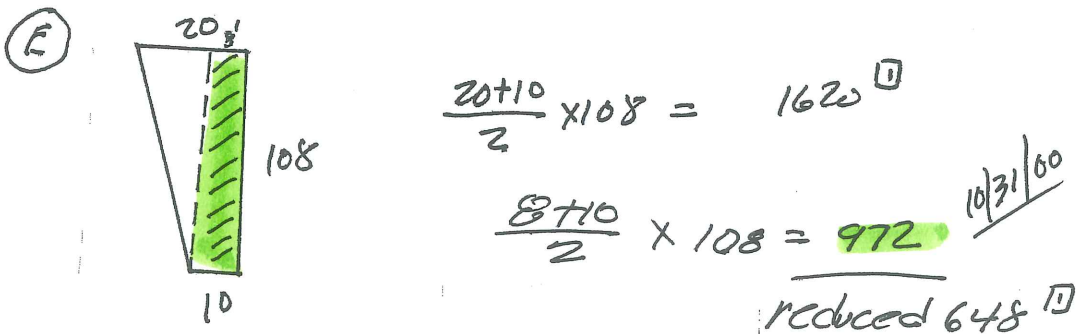 E
20
8'
108
10
20+10/2 ×108 = 1620 1
8+10/2 × 108 = 972
10/31/00
reduced 648 1